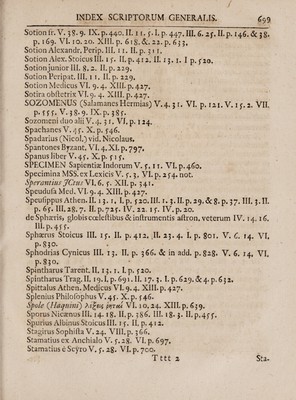 INDEX SCRIPTORUM GENERALIS. 699
Sotion fr. V. 38. 9. IX. p. 440. II. 11. 5. I. p. 447. III. 6. 25. II. p. 146. & 38.
p. 169. VI. 10. 20. XIII. p. 618. &. 22. p. 633.
Sotion Alexandr. Perip. III. 11. II. p. 311.
Sotion Alex. Stoicus III. 15. II. p. 412. II. 13. 1. I p. 520.
Sotion junior III. 8. 2. II. p. 229.
Sotion Peripat. III. 11. II. p. 229.
Sotion Medicus VI. 9. 4. XIII. p. 427.
Sotira obstetrix VI. 9. 4. XIII. p. 427.
SOZOMENUS (Salamanes Hermias) V. 4. 31. VI. p. 121. V. 15. 2. VII.
p. 555. V. 38. 9. IX. p. 385.
Sozomeni duo alii V. 4. 31. VI. p. 124.
Spachanes V. 45. X. p. 546.
Spadarius (Nicol.) vid. Nicolaus.
Spantones Byzant. VI. 4. XI. p. 797.
Spanus liber V. 45. X. p. 515.
SPECIMEN Sapientiæ Indorum V. 5. 11. VI. p. 460.
Specimina MSS. ex Lexicis V. 5. 3. VI. p. 254. not.
Sperantius JCtus VI. 6. 5. XII. p. 341.
Speudusa Med. VI. 9. 4. XIII. p. 427.
Speusippus Athen. II. 13. 1. I. p. 520. III. 1. 3. II. p. 29. & 8. p. 37. III. 3. II.
p. 65. III. 28. 7. II. p. 725. IV. 22. 15. IV. p. 20.
de Sphæris, globis cœlestibus & instrumentis astron. veterum IV. 14. 16.
III. p. 455.
Sphærus Stoicus III. 15. II. p. 412. II. 23. 4. I. p. 801. V. 6. 14. VI.
p. 830.
Sphodrias Cynicus III. 13. II. p. 366. & in add. p. 828. V. 6. 14. VI.
p. 830.
Spintharus Tarent. II. 13. 1. I. p. 520.
Spintharus Trag. II. 19. I. p. 691. II. 17. 3. I. p. 629. & 4. p. 632.
Spittalus Athen. Medicus VI. 9. 4. XIII. p. 427.
Splenius Philosophus V. 45. X. p. 546.
Spole (Haquini) λέξεις ῥηταὶ VI. 10. 24. XIII. p. 639.
Sporus Nicænus III. 14. 18. II. p. 386. III. 18. 3. II. p. 455.
Spurius Albinus Stoicus III. 15. II. p. 412.
Stagirus Sophista V. 24. VIII. p. 366.
Stamatius ex Anchialo V. 5. 28. VI. p. 697.
Stamatius è Scyro V. 5. 28. VI. p. 700.
Tttt 2 Sta-